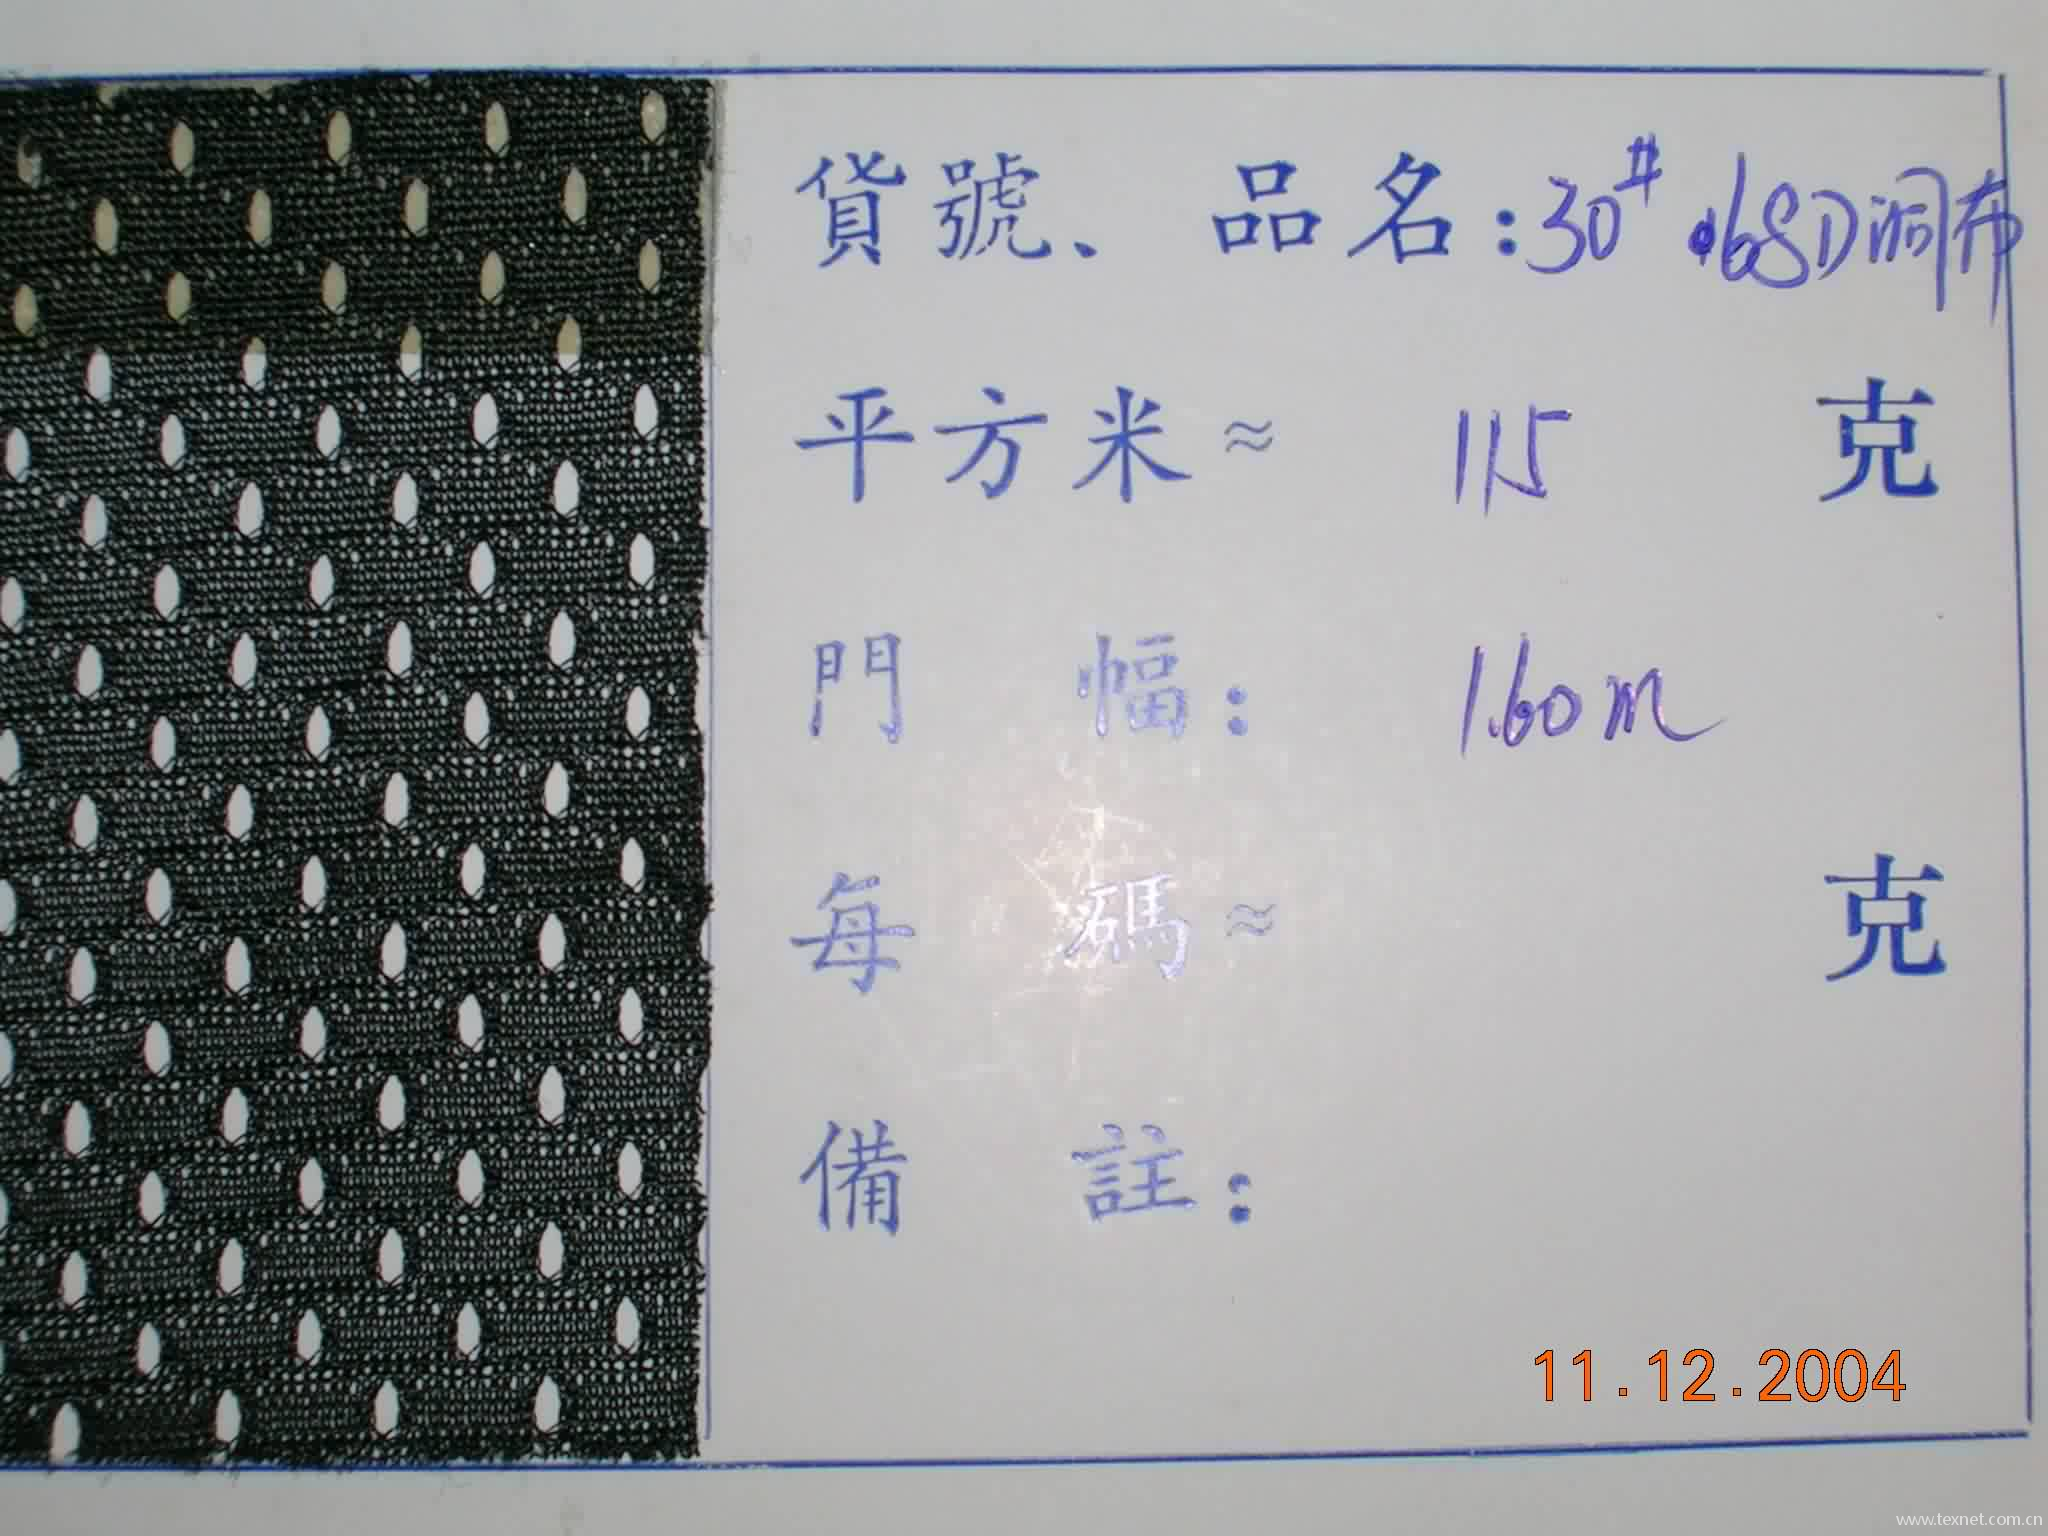 貨號、品名:30# 68D洞布
平方米≈ 115 克
門幅: 1.60m
每碼≈ 克
備註:
11.12.2004
www.texnet.com.cn